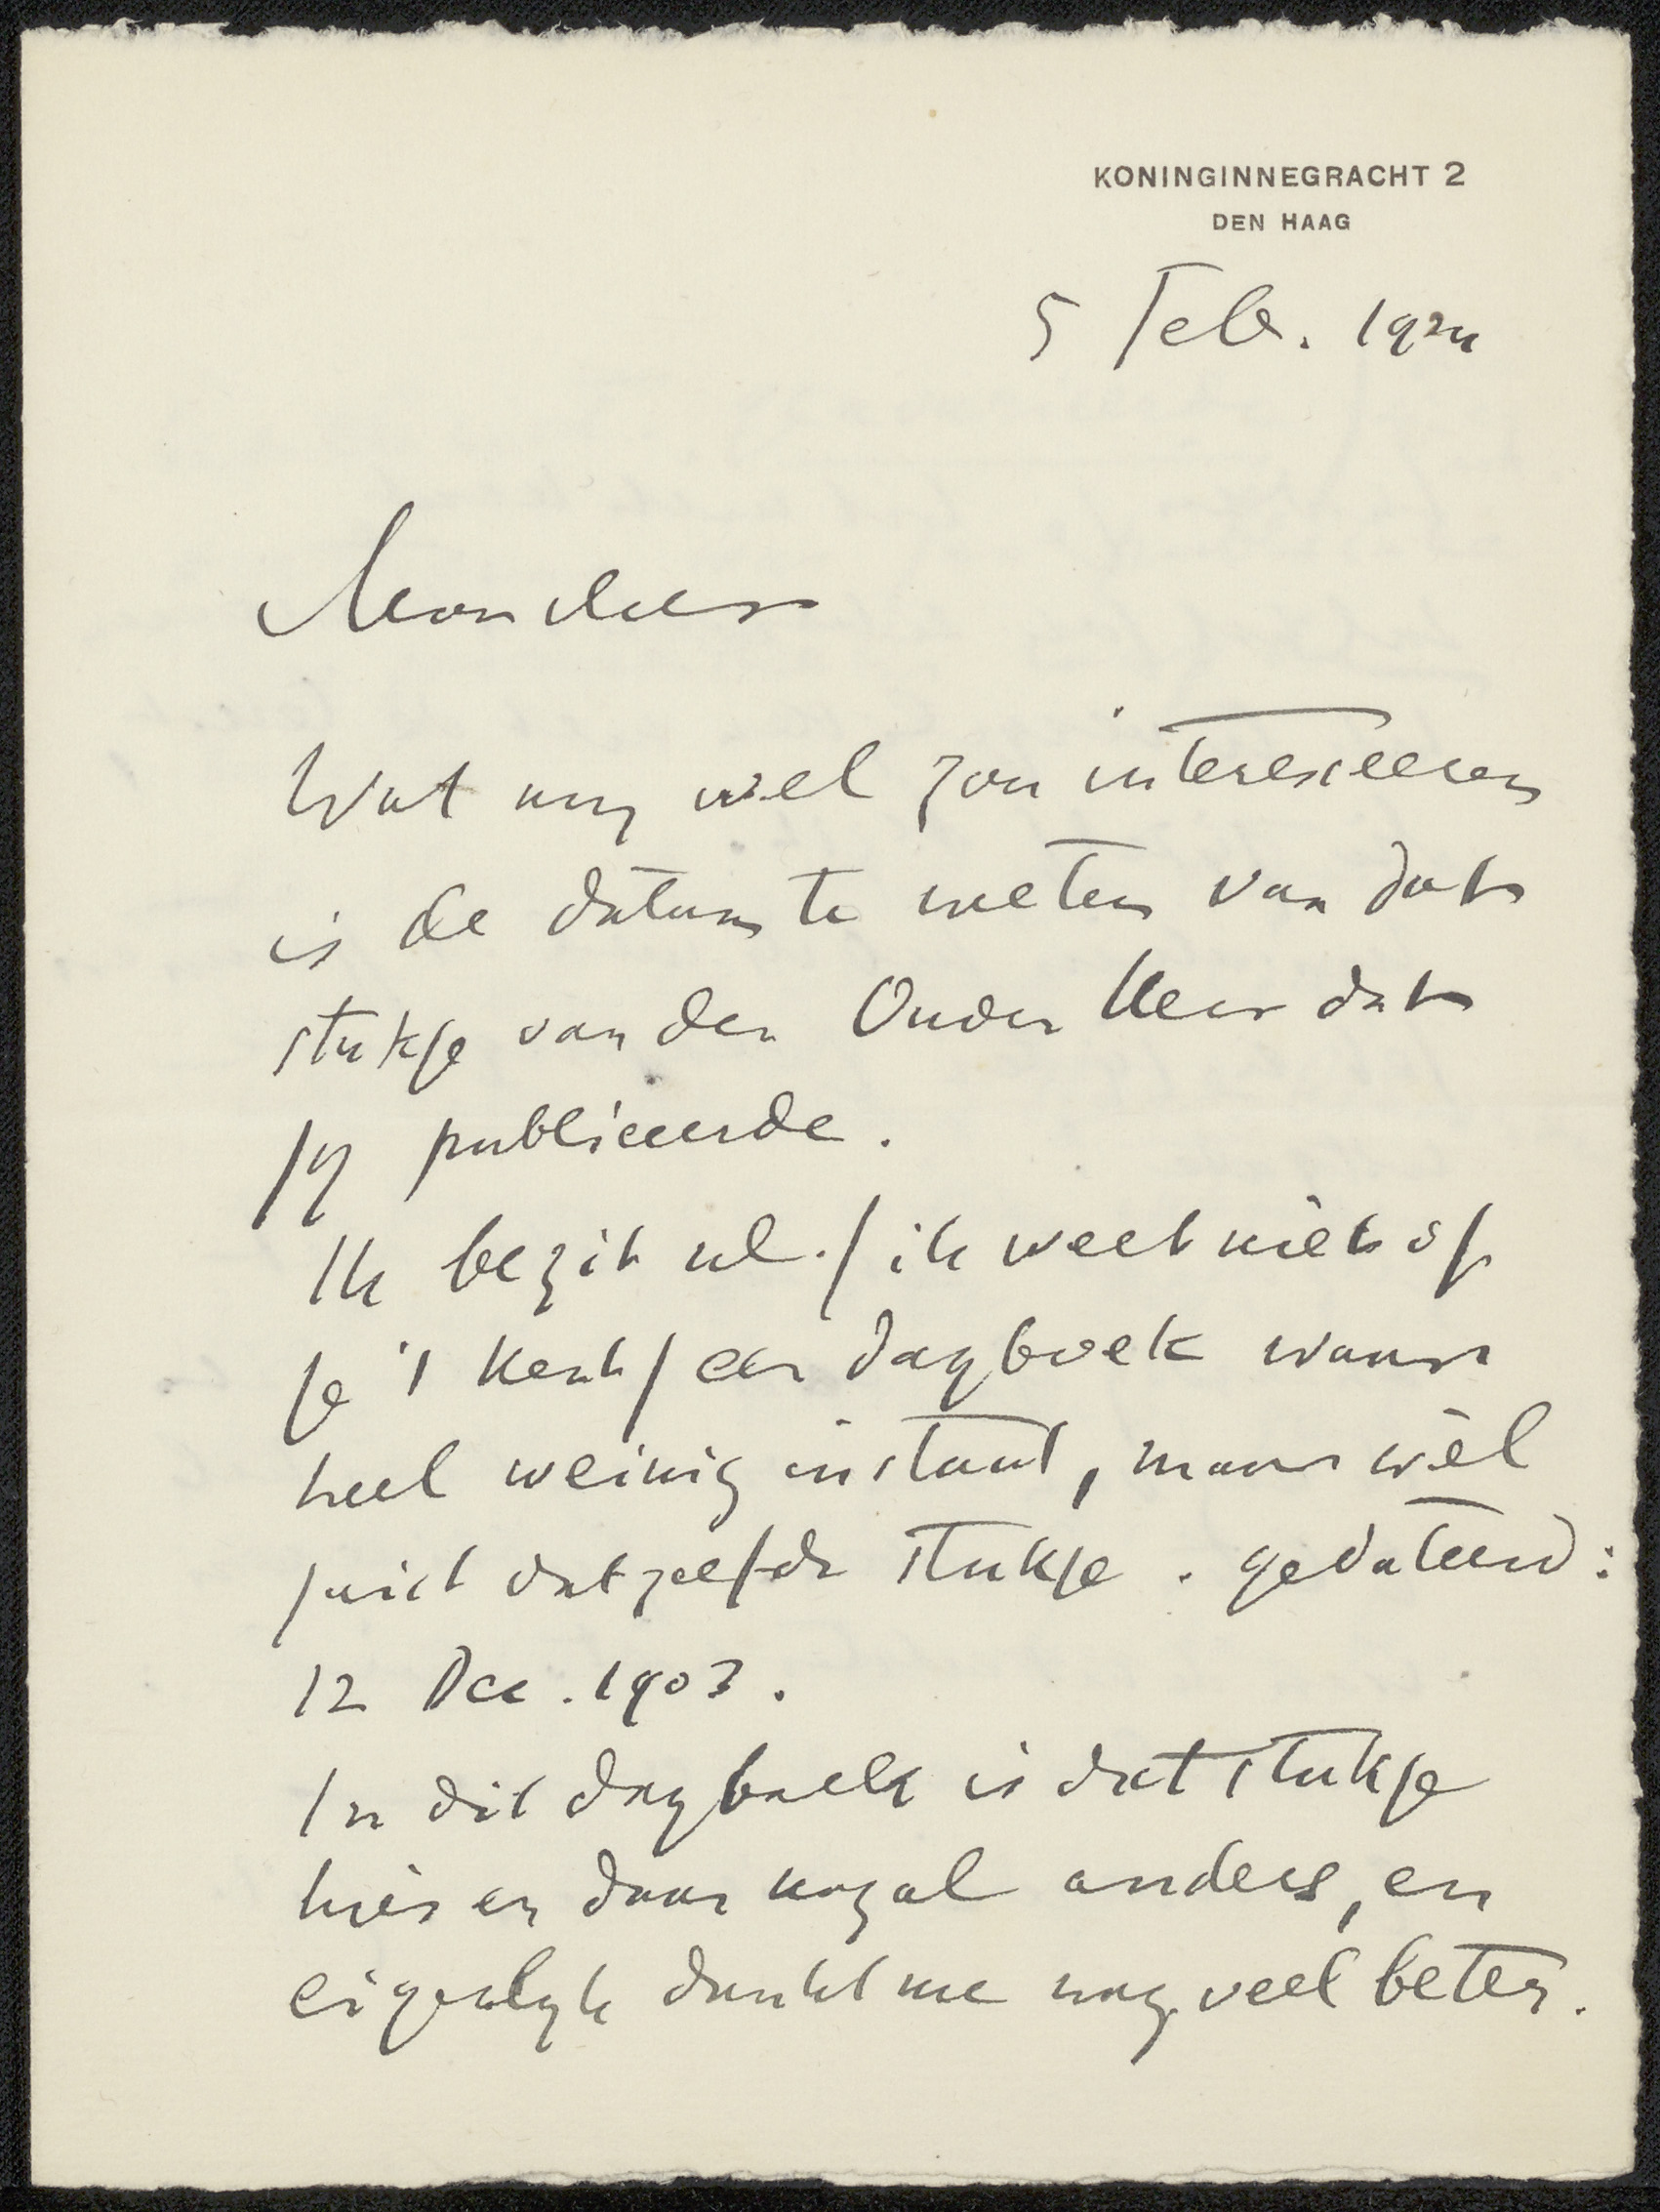 KONINGINNEGRACHT 2
DEN HAAG
5 Feb. 1924
Wat my wel zou interesseeren
is de datum te weten van dat
stukje van den Ouden Heer dat
jy publiceerde.
Ik bezit nl. / ik weet niet of
je 't kent / een dagboek waar
heel weinig in staat, maar wèl
juist datzelfde stukje. gedateerd:
12 Dec. 1903.
In dit dagboek is dat stukje
hier en daar nogal anders, en
eigenlyk dunkt me nog veel beter.